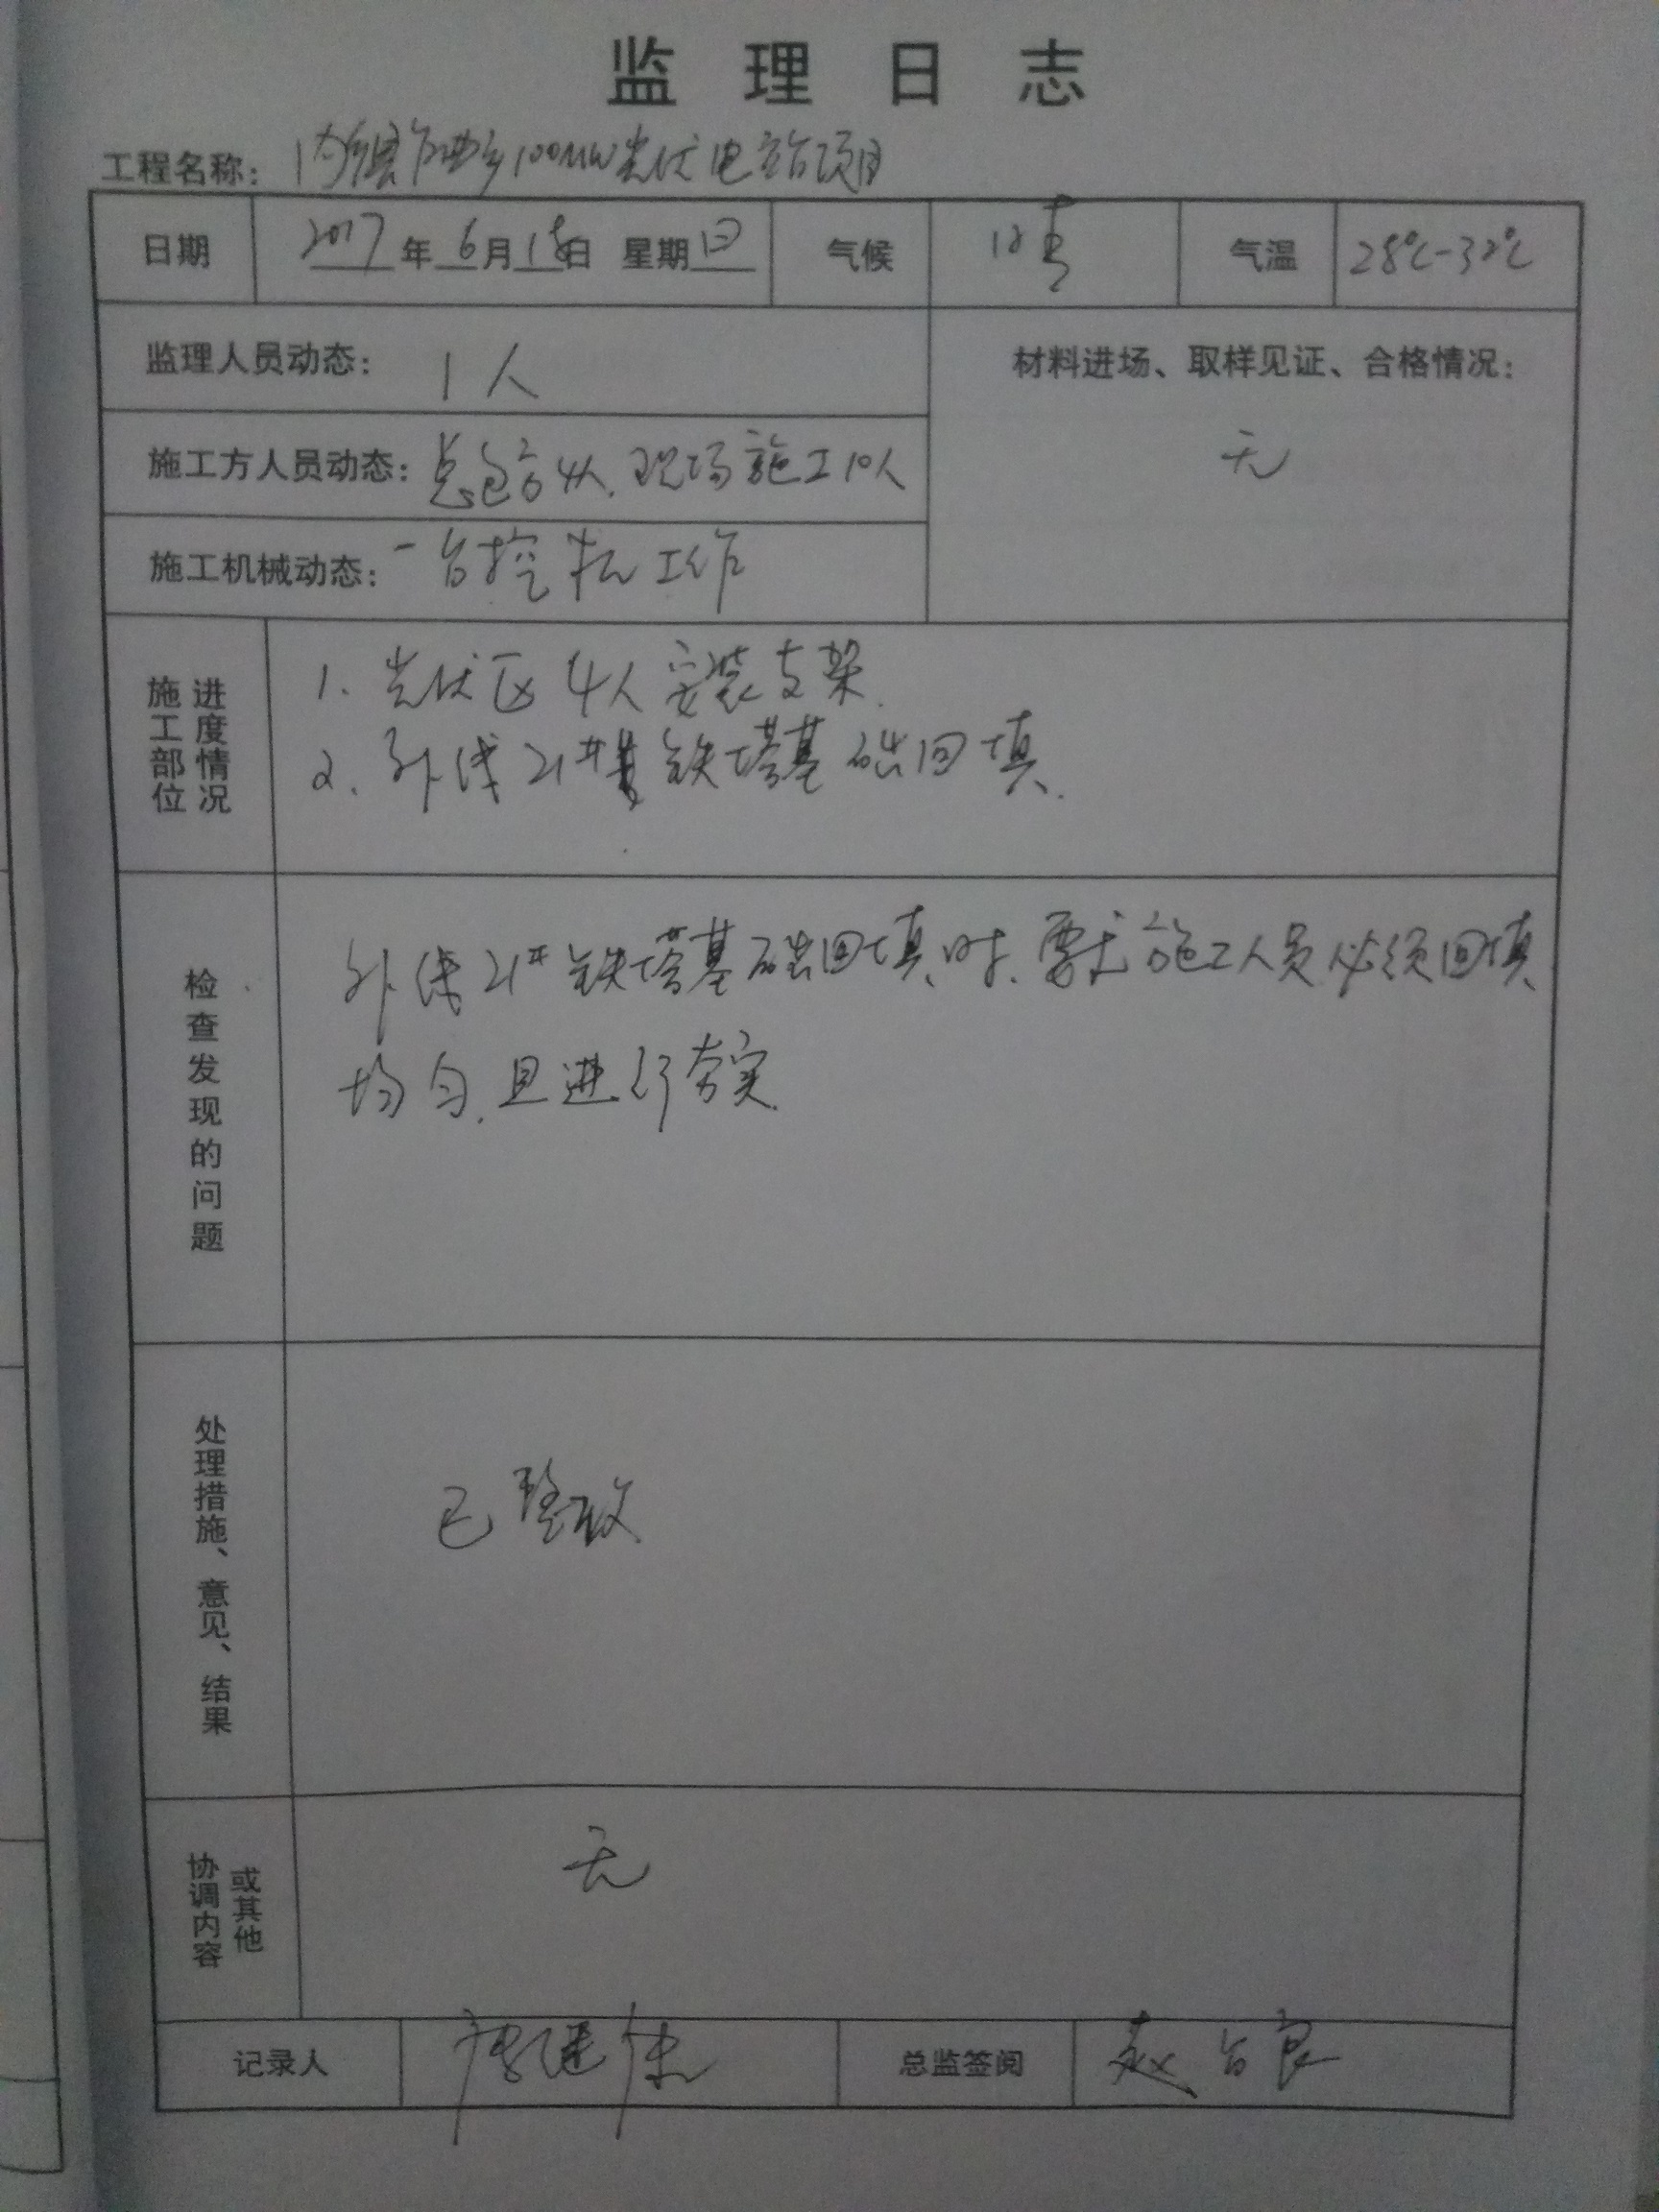 监理日志
工程名称：内乡县乍曲乡100MW光伏电站项目
日期 2017年6月18日 星期日 气候 晴 气温 28℃-32℃
监理人员动态：1人
材料进场、取样见证、合格情况：
无
施工方人员动态：总包方4人.现场施工10人
施工机械动态：一台挖机工作
施工部位 进度情况
1. 光伏区4人安装支架.
2. 外线21#铁塔基础回填.
检查发现的问题
外线21#铁塔基础回填时.要求施工人员必须回填
均匀.且进行夯实.
处理措施、意见、结果
已整改
协调内容 或其他
无
记录人 总监签阅